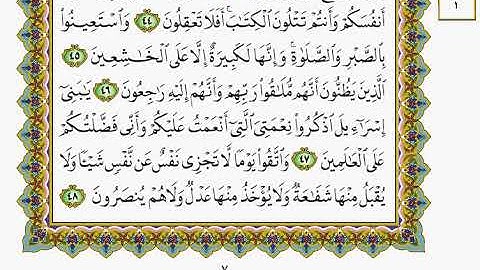 أَنفُسَكُمْ وَأَنتُمْ تَتْلُونَ الْكِتَابَ أَفَلَا تَعْقِلُونَ ٤٤ وَاسْتَعِينُوا
بِالصَّبْرِ وَالصَّلَوٰةِ وَإِنَّهَا لَكَبِيرَةٌ إِلَّا عَلَى الْخَاشِعِينَ ٤٥
الَّذِينَ يَظُنُّونَ أَنَّهُم مُّلَاقُوا رَبِّهِمْ وَأَنَّهُمْ إِلَيْهِ رَاجِعُونَ ٤٦ يَٰبَنِي
إِسْرَاءِيلَ اذْكُرُوا نِعْمَتِيَ الَّتِي أَنْعَمْتُ عَلَيْكُمْ وَأَنِّي فَضَّلْتُكُمْ
عَلَى الْعَالَمِينَ ٤٧ وَاتَّقُوا يَوْمًا لَّا تَجْزِي نَفْسٌ عَن نَّفْسٍ شَيْئًا وَلَا
يُقْبَلُ مِنْهَا شَفَاعَةٌ وَلَا يُؤْخَذُ مِنْهَا عَدْلٌ وَلَا هُمْ يُنصَرُونَ ٤٨
١
٧